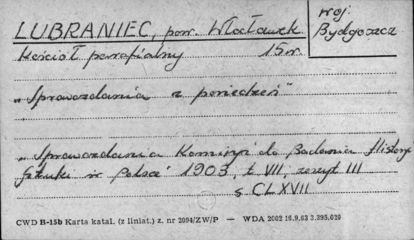 LUBRANIEC, pow. Włocławek
woj.
Bydgoszcz
Kościół parafialny 15 w.
„Sprawozdania z posiedzeń"
„Sprawozdania Komisyi do Badania History
Sztuki w Polsce" 1903, t. VII, zeszyt III
s CLXVII
CWD B-15b Karta katal. (z liniat.) z. nr 2094/ZW/P — WDA 2002 16.9.63 2.395.020